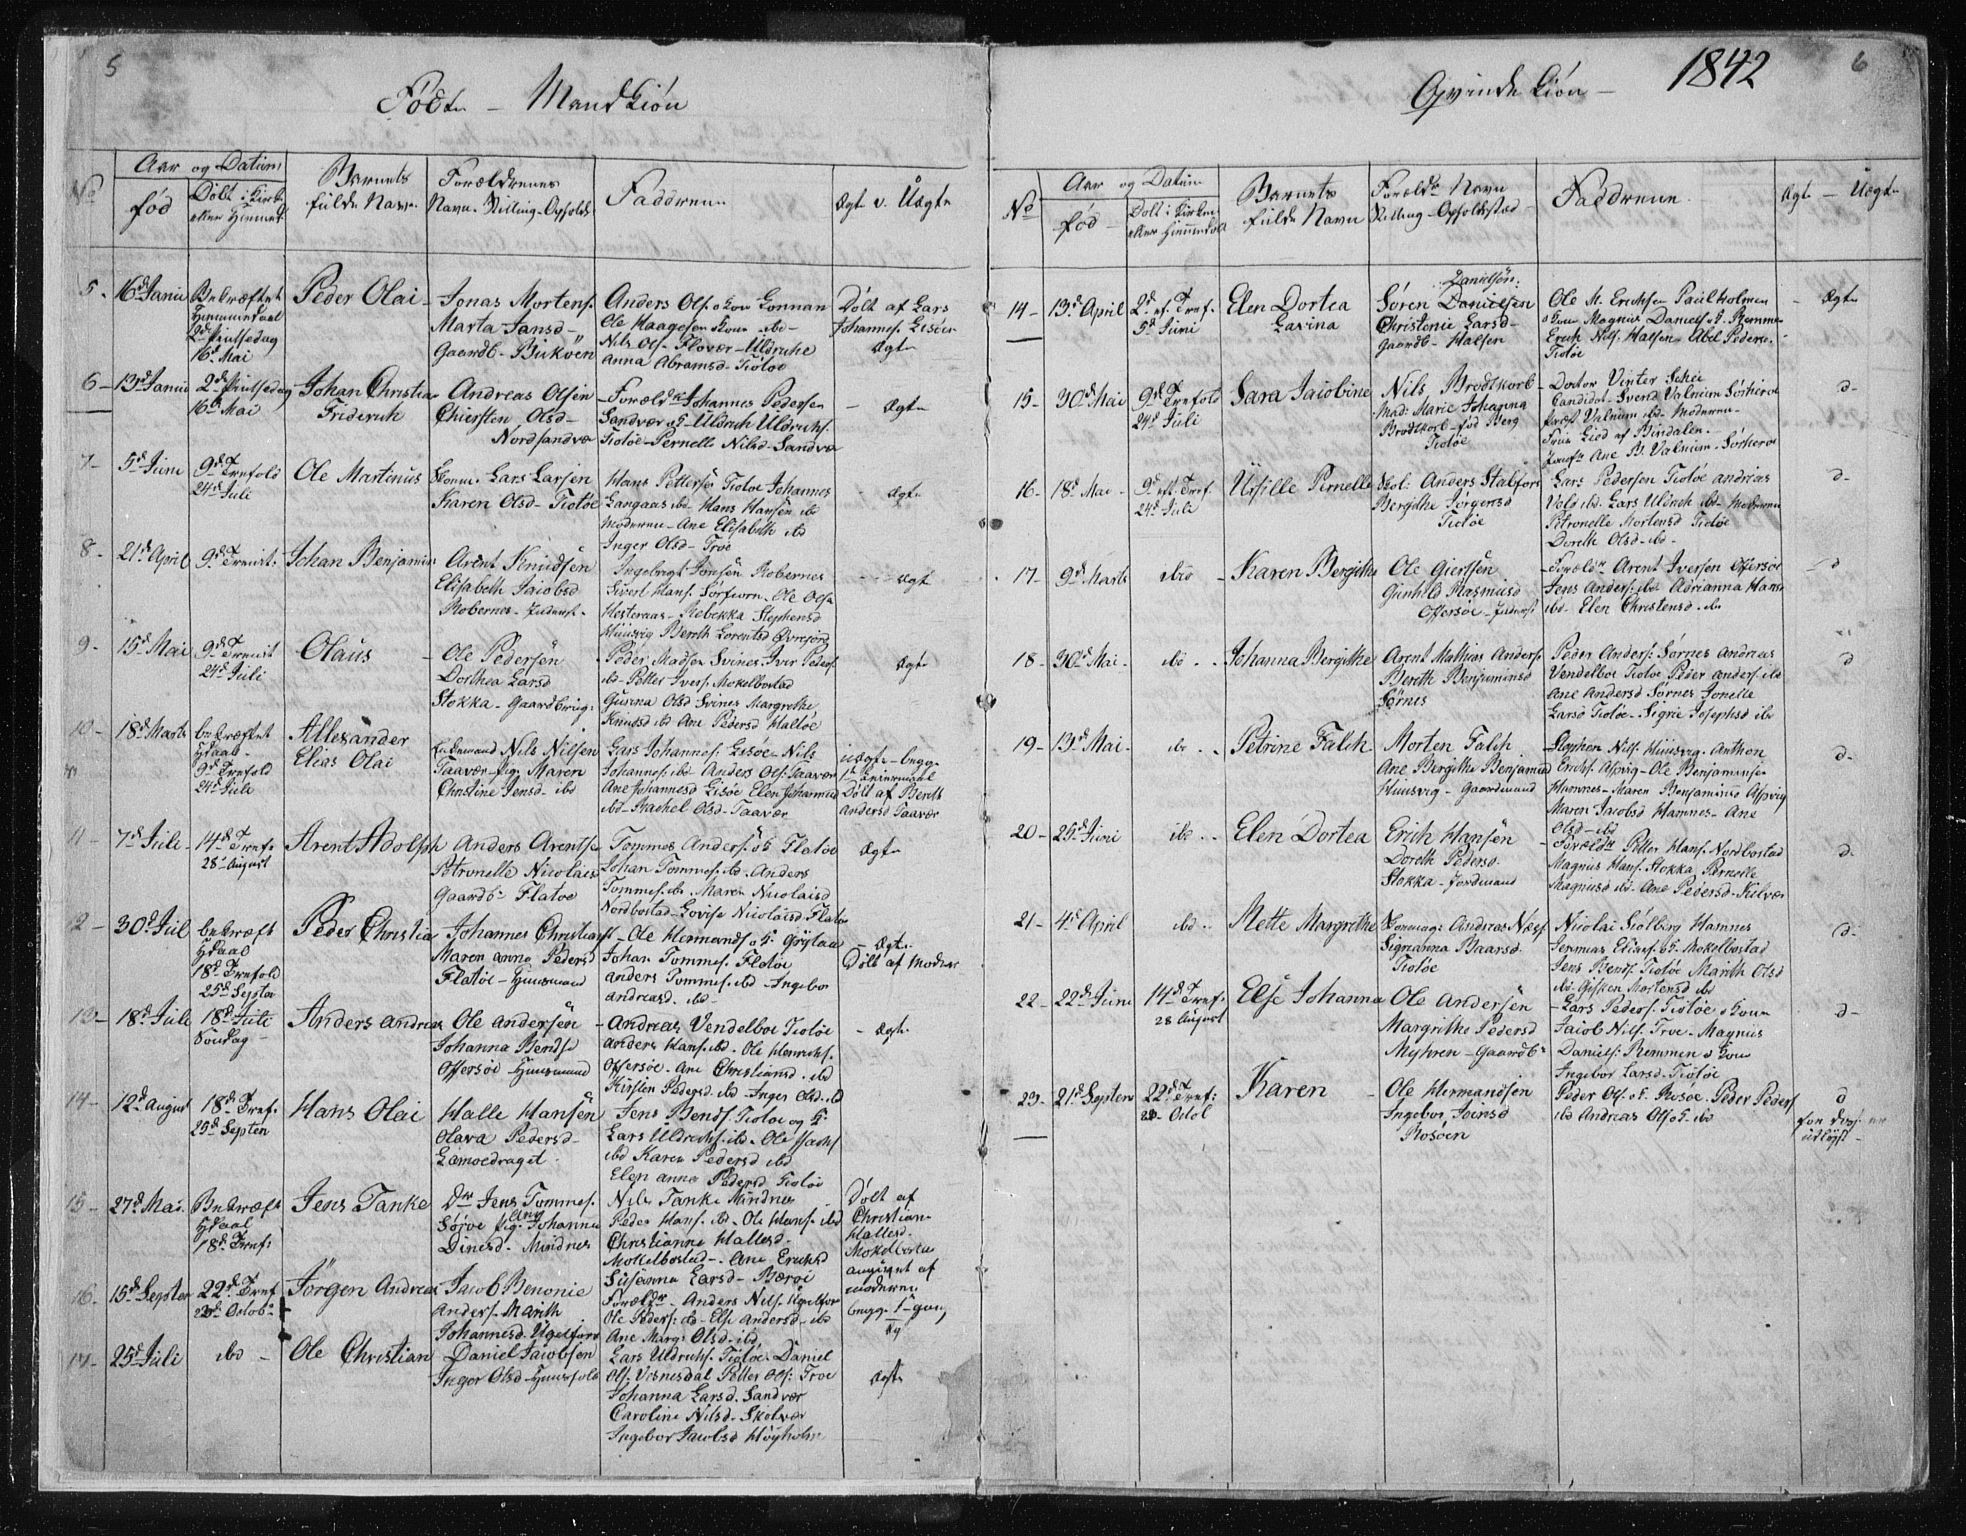 5
Födte - Mandkiön
No
Aar og Datum
född
Dölt i Kirke
eller Hiemmet
Barnets
fulde Navn
Forældrenes
Navn. Stilling. Opholds
Faddrene
Ægte v. Uægte
5. 16d Janu
Bekræftet
Hiemmedaab
2d Pintsedag
16d Mai
Peder Olai
Jonas Mortens.
Marta Jansd
Gaardb. Birköen
Anders Ols. o kone
Ole Haagesen kone ibd
Nils Ols. Flovær - Uldriche
Anna Abramsd - Tiötöe
Dölt af Lars
Johannes. Lisöen
Ægte
6 - 13d Janu
2d Pintsedag
16d Mai
Johan Christian
Friderich
Andreas Olsen
Chiersten Olsd
Nordsandvær
Foræld. Johannes Pedersen
Sandvær og Uldrich Uldrichs.
Tiötöe - Pernelle Nilsd - Sandvær
- Ægte
7 - 5d Juni
9d T
Trefold
24d Juli
Ole Martinus
Lars Larsen
Karen Olsd - Tiötöe
Hans Petters. Tiotöe Johannes
Langaas ibd - Hans Hansen ibd
Moderen - Ane Elisabeth ibd
Inger Olsd - Troe
- Ægte
8 - 21d April
9d Trenit.
Johan Benjamin
Arent Knudsen
Elisabeth Jacobsd
Robernes - Inderst
Ingebrigt Jonsen Robernes
Sivert Hans. Sörfiorn. Ole Olsen
Hesteraas - Rebekka Stephensd
Huusvig Bereth Lorentsd Övrefjord
- Ægte
9 - 15d Mai
9d T
Trenit
24d Juli
Olaus
Ole Pedersen
Dorthea Larsd
Stokka - Gaardbrug.
Peder Madsen Svines. Iver Peders.
ibd - Petter Ivers. Mokelbostad
Gurina Olsd Svines Margrethe
Knudsd ibd Ane Pedersd Haltöe
Ægte
10 - 18d Marts
bekræftet
Hdaab
9d Trefold
24d Juli
Allexander
Elias Olai
Nils Nilsen
Taavær - Pig. Maren
Christine Jensd - ibd
Lars Johannes. Lisöe. Nils
Johannes. ibd. Anders Ols. Taavær
Ane Johannesd Lisöe Elen Johannesd
ibd - Rachel Olsd - Taavær
uægte - begge
1te Leiermaal
Dölt af Bereth
Andersd Taavær
11 - 7d Juli
14d T
Tref.
28d August
Arent Adolph
Anders Arentsen
Petronelle Nicolaisd
Gaardb. Flatöe
Tommes Anders. og Flatöe
Johan Tommes. ibd. Anders
Tommes. ibd. Maren Nicolaisd
Nordbostad - Lovise Nicolaisd. Flatöe
Ægte
12 - 30d Jul
bekræft
Hdaab
18d Trefold
25d Septbr
Peder Christian
Johannes Christians.
Maren Anna Pedersd
Flatöe - Huusmand
Ole Hermands. og
Johan Tommes. Flatöe
Anders Tommes. ibd - Ingebor
Andreasd. ibd
- Ægte.
Dölt af Moderen
13 - 18d Juli
18d Juli
Söndag
Anders Andreas
Ole Andersen
Johanna Bendsd
Offersöe Huusmand
Andreas Vendelboe Tiötöe
Anders Hans. ibd - Ole Henrichs.
Offersöe - Ane Christiansd. ibd
Kirsten Pedersd ibd - Inger Olsd. ibd
- Ægte
14 - 12d August
18d Tref.
25d Septen
Hans Olai
Halle Hansen
Olava Pedersd -
Lamoedraget
Jens Bends. Tiötöe og
Lars Uldrichs. ibd. Ole
ibd Karen Pedersd ibd
Elen Anna Pedersd Tiötöe
15 - 27d Mai
Bekræft
Hdaab
18d Tref.
Jens Tanke
Jens Tommes.
Sörvæ Pig. Ane Johanna
Dinesd. Mindnes
Nils Tanke Mindnes
Peder Hans. ibd. Ole Hans. ibd
Christianne Hallesd.
Mokkelbostad - Ane Ericksd
Susanna Larsd - Bæröe
Dölt af
Christian
Hallesd.
Mokelbostad
angivet af
moderen
begge 1te gang
16 - 15d Septer
22d T
Tref
23d Octob.
Jörgen Andreas
Jacob Benonie
Anders. Marith
Johannesd Ugelfiord
Foræld. Anders Nils. Ugelfior
Ole Peders. ibd - Else Andersd - ibd
Ane Marg. Olsd. ibd
Æg
17 - 25d Juli
ibd
Ole Christian
Daniel Jacobsen
Inger Olsd - Huusfolk
Lars Uldrichs. Tiötöe. Daniel
Ols. Visnesdal Petter Ols. Troe
Johanna Larsd. Sandvær
Caroline Nilsd. Skolvær
Ingebor Jacobsd Höyholm
Ægte
Qvinde Kiön -
1842
6
No
Aar og Datum
född
Dölt i Kirken
eller Hiemmedölt
Barnets
fulde Navn
Foræld. Navn
Stilling - Opholdssted
Faddrene
Ægte - Uægte
14 - 13d April
2d ef. Tref.
5d Juni
Elen Dortea
Lavina
Danielsön.
Sören Danielsen
Christence Larsd -
Gaardb - Halsen
Ole M. Erichsen Paulholmen
Magnus Daniels. og Remmen
Erich Nils. Halsen Abel Peders.
Tiötöe
- Ægte
15 - 30d Mai
9d Trefold
24d Juli
Sara Jacobine
Nils Brodtkorb
Mad. Marie Johanna
Brodtkorb - fød Berg
Tiötöe
Doctor Vinter Schei
Candidat Svend Valnum Sörherø
Præst Valnum ibd - Moderen -
Frue Lied af Bindalen.
Ane B. Valnum. Sörherø
d -
16 - 18d Mai -
9d eft. Tref.
24d Juli
Ursille Pernelle
Anders Stalfors
Bergithe Jörgensd
Tiötöe
Lars Pedersen Tiötöe Andreas
Vold ibd. Lars Uldrich ibd - Moderen
Petronelle Mortensd Tiötöe
Doreth Olsd. ibd.
d -
17 - 9d Marts
ibid
Karen Bergithe
Ole Giertsen
Gunhild Rasmusd
Offersöe - Inderst
Foræld. Arent Iversen Offersöe
Jens Anders. ibd Adrianna Hans.
ibd. Elen Christensd. ibd
- d
18 - 30d Mai -
ibd . .
Johanna Bergithe
Arent Mathias Anders.
Bereth Benjaminsd
Sörnes
Peder Anders. Sörnes Andreas
Vendelboe Tiötöe Peder Anders. ibd
Ane Andersd Sörnes Jonelle
Larsd Tiötöe - Sigrie Josephsd ibd
d
19 - 13d Mai -
ibd . .
Petrine Falch
Morten Falch
Ane Bergithe Benjaminsd
Huusvig - Gaardmand
Stephen Nils. Huusvig. Anthon
Erichs. Aspvig - Ole Benjaminsen
Hamnes - Maren Benjaminsd Aspvig
Maren Jacobsd Hamnes - Ane
Olsd - ibd
d -
20 - 25d Juni
ibd . .
Elen Dortea
Erich Hansen
Doreth Pedersd.
Stokka - Jordmand
Foræld. Petter Hans. Nordbostad
Magnus Hans. Stokka Pernelle
Magnusd ibd - Ane Pedersd - Kilvær
d -
21 - 4d April
ibd . .
Mette Margrethe
Andreas Næss
Signanna Baarsd.
Tiötöe
Nicolai Siölberg Hamnes
Jermias Elias. og Mokelbostad
Jens Bends. Tiötöe Marith Olsd
ibd - Gesken Mortensd ibd
d -
22 - 22d Juni
14d T
Tref.
28 August
Else Johanna
Ole Andersen
Margrethe Pedersd
Myhren - Gaardb.
Lars Peders. Tiötöe o kone
Jacob Nils. Troe - Magnus
Daniels. Remmen o kone
Ingebor Larsd. Tiötöe
d -
23 - 21d Septem
22d T
Tref.
23 Octob
Karen
Ole Hermandsen
Ingebor Joensd
Rosöen
Peder Ols. og Rosöe. Peder Peders.
ibd Andreas Ols. og ibd
d